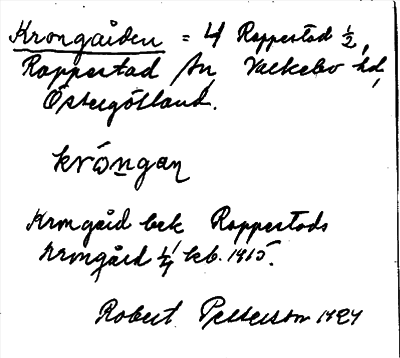 Krongården = 4 Rappestad ½,
Rappestad sn, Valkebo hd,
Östergötland.
krōngaṇ
Krongård bek Rappestads
Krongård ¼ kb. 1915.
Robert Petterson 1929